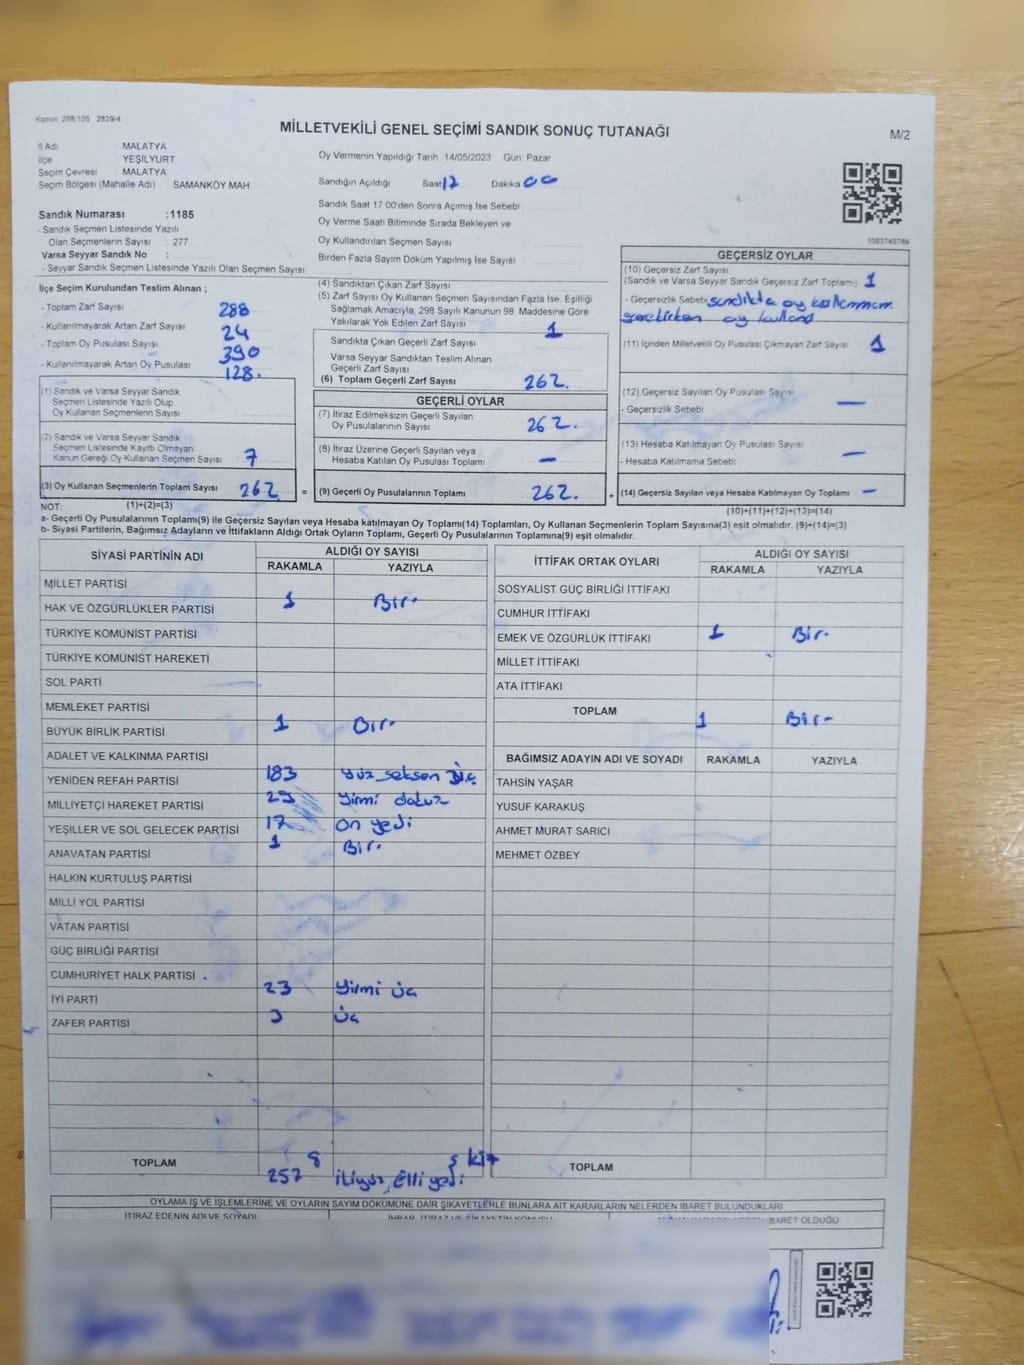 Kanun: 298/105 2839/4
MİLLETVEKİLİ GENEL SEÇİMİ SANDIK SONUÇ TUTANAĞI
M/2
İl Adı MALATYA
İlçe YEŞİLYURT
Seçim Çevresi MALATYA
Seçim Bölgesi (Mahalle Adı) SAMANKÖY MAH.
Sandık Numarası :1185
- Sandık Seçmen Listesinde Yazılı
Olan Seçmenlerin Sayısı : 277
Varsa Seyyar Sandık No :
- Seyyar Sandık Seçmen Listesinde Yazılı Olan Seçmen Sayısı
Oy Vermenin Yapıldığı Tarih 14/05/2023 Gün: Pazar
Sandığın Açıldığı Saat 17 Dakika 00
Sandık Saat 17:00'den Sonra Açılmış İse Sebebi
Oy Verme Saati Bitiminde Sırada Bekleyen ve
Oy Kullandırılan Seçmen Sayısı
Birden Fazla Sayım Döküm Yapılmış İse Sayısı
1083745789
İlçe Seçim Kurulundan Teslim Alınan ;
- Toplam Zarf Sayısı 288
- Kullanılmayarak Artan Zarf Sayısı 24
- Toplam Oy Pusulası Sayısı 390
- Kullanılmayarak Artan Oy Pusulası 128.
(1) Sandık ve Varsa Seyyar Sandık
Seçmen Listesinde Yazılı Olup
Oy Kullanan Seçmenlerin Sayısı
(2) Sandık ve Varsa Seyyar Sandık
Seçmen Listesinde Kayıtlı Olmayan
Kanun Gereği Oy Kullanan Seçmen Sayısı 7
(3) Oy Kullanan Seçmenlerin Toplam Sayısı 262
(4) Sandıktan Çıkan Zarf Sayısı
(5) Zarf Sayısı Oy Kullanan Seçmen Sayısından Fazla İse, Eşitliği
Sağlamak Amacıyla, 298 Sayılı Kanunun 98. Maddesine Göre
Yakılarak Yok Edilen Zarf Sayısı 1
Sandıkta Çıkan Geçerli Zarf Sayısı
Varsa Seyyar Sandıktan Teslim Alınan
Geçerli Zarf Sayısı
(6) Toplam Geçerli Zarf Sayısı 262.
GEÇERLİ OYLAR
(7) İtiraz Edilmeksizin Geçerli Sayılan
Oy Pusulalarının Sayısı 262.
(8) İtiraz Üzerine Geçerli Sayılan veya
Hesaba Katılan Oy Pusulası Toplamı —
= (9) Geçerli Oy Pusulalarının Toplamı 262.
GEÇERSİZ OYLAR
(10) Geçersiz Zarf Sayısı
(Sandık ve Varsa Seyyar Sandık Geçersiz Zarf Toplamı) 1
- Geçersizlik Sebebi sandıkta oy kullanmam
gerekirken oy kulland
(11) İçinden Milletvekili Oy Pusulası Çıkmayan Zarf Sayısı 1
(12) Geçersiz Sayılan Oy Pusulası Sayısı —
- Geçersizlik Sebebi
(13) Hesaba Katılmayan Oy Pusulası Sayısı —
- Hesaba Katılmama Sebebi
+ (14) Geçersiz Sayılan veya Hesaba Katılmayan Oy Toplamı —
NOT: (1)+(2)=(3)
(10)+(11)+(12)+(13)=(14)
a- Geçerli Oy Pusulalarının Toplamı(9) ile Geçersiz Sayılan veya Hesaba katılmayan Oy Toplamı(14) Toplamları, Oy Kullanan Seçmenlerin Toplam Sayısına(3) eşit olmalıdır. (9)+(14)=(3)
b- Siyasi Partilerin, Bağımsız Adayların ve İttifakların Aldığı Ortak Oyların Toplamı, Geçerli Oy Pusulalarının Toplamına(9) eşit olmalıdır.
SİYASİ PARTİNİN ADI ALDIĞI OY SAYISI
RAKAMLA YAZIYLA
MİLLET PARTİSİ
HAK VE ÖZGÜRLÜKLER PARTİSİ 1 Bir.
TÜRKİYE KOMÜNİST PARTİSİ
TÜRKİYE KOMÜNİST HAREKETİ
SOL PARTİ
MEMLEKET PARTİSİ
BÜYÜK BİRLİK PARTİSİ 1 Bir.
ADALET VE KALKINMA PARTİSİ
YENİDEN REFAH PARTİSİ 183 Yüz seksen üç
MİLLİYETÇİ HAREKET PARTİSİ 29 Yirmi dokuz
YEŞİLLER VE SOL GELECEK PARTİSİ 17 On yedi
ANAVATAN PARTİSİ 1 Bir.
HALKIN KURTULUŞ PARTİSİ
MİLLİ YOL PARTİSİ
VATAN PARTİSİ
GÜÇ BİRLİĞİ PARTİSİ
CUMHURİYET HALK PARTİSİ
İYİ PARTİ 23 Yirmi üç
ZAFER PARTİSİ 3 üç
TOPLAM 257 8 İkiyüz Elli yedi
İTTİFAK ORTAK OYLARI ALDIĞI OY SAYISI
RAKAMLA YAZIYLA
SOSYALİST GÜÇ BİRLİĞİ İTTİFAKI
CUMHUR İTTİFAKI
EMEK VE ÖZGÜRLÜK İTTİFAKI 1 Bir.
MİLLET İTTİFAKI
ATA İTTİFAKI
TOPLAM 1 Bir-
BAĞIMSIZ ADAYIN ADI VE SOYADI RAKAMLA YAZIYLA
TAHSİN YAŞAR
YUSUF KARAKUŞ
AHMET MURAT SARICI
MEHMET ÖZBEY
TOPLAM
OYLAMA İŞ VE İŞLEMLERİNE VE OYLARIN SAYIM DÖKÜMÜNE DAİR ŞİKAYETLERLE BUNLARA AİT KARARLARIN NELERDEN İBARET BULUNDUKLARI
İTİRAZ EDENİN ADI VE SOYADI
İHBAR, İTİRAZ VE ŞİKAYETİN KONUSU
İBARET OLDUĞU